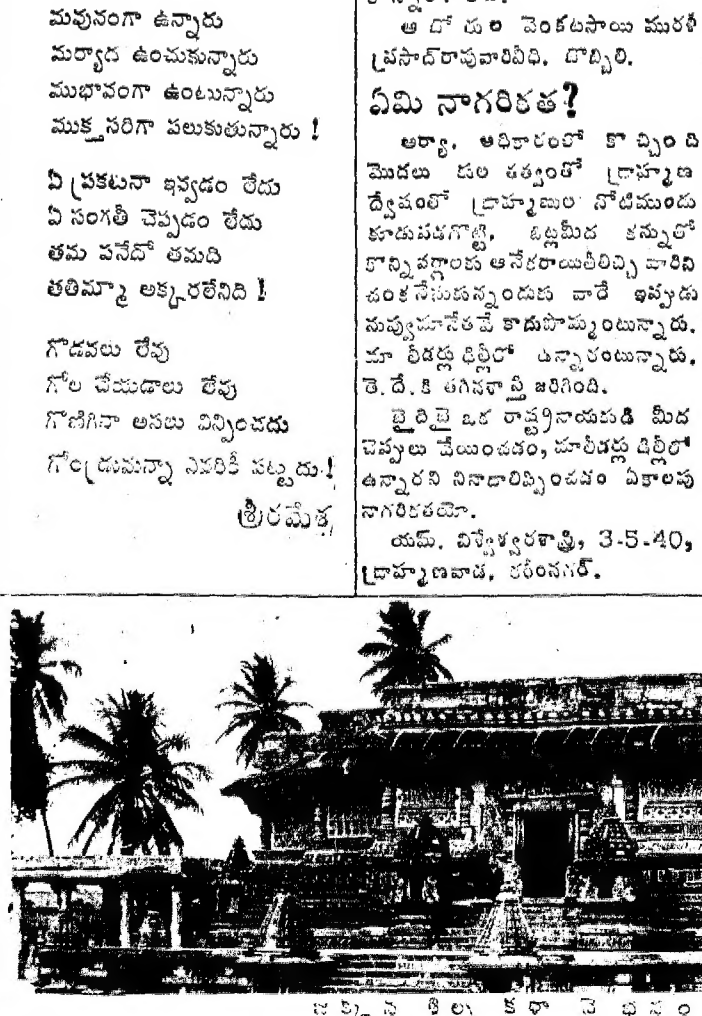 మవునంగా ఉన్నారు
మర్యాద ఉంచుకున్నారు
ముభావంగా ఉంటున్నారు
ముక్తసరిగా పలుకుతున్నారు !
ఏ ప్రకటనా ఇవ్వడం లేదు
ఏ సంగతీ చెప్పడం లేదు
తమ పనేదో తమది
తతిమ్మా అక్కరలేనిది !
గొడవలు లేవు
గోల చేయుడాలు లేవు
గొణిగినా అసలు విన్పించదు
గోండ్రుమన్నా ఎవరికీ పట్టదు !
శ్రీరమేశ్
వెంకటసాయి మురళీ
ప్రసాద్‌రావువారివీధి, బొబ్బిలి.
ఏమి నాగరికత?
అర్యా, అధికారంలో కొచ్చింది
మొదలు కుల తత్వంతో బ్రాహ్మణ
ద్వేషంతో బ్రాహ్మణుల నోటిముందు
కూడుపడగొట్టి, ఓట్లమీద కన్నుతో
కొన్నివర్గాలకు అనేకరాయితీలిచ్చి వారిని
చంకనేసుకున్నందుకు వారే ఇప్పుడు
నువ్వుమానేతవే కాదుపొమ్మంటున్నారు.
మా లీడర్లు ఢిల్లీలో ఉన్నారంటున్నారు.
తె. దే. కి తగినశాస్తి జరిగింది.
ఒక రాష్ట్రనాయకుడి మీద
చెప్పులు వేయించడం, మాలీడర్లు ఢిల్లీలో
ఉన్నారని నినాదాలిప్పించడం ఏకాలపు
నాగరికతయో.
యమ్. విశ్వేశ్వరశాస్త్రి, 3-5-40,
బ్రాహ్మణవాడ, కరీంనగర్.